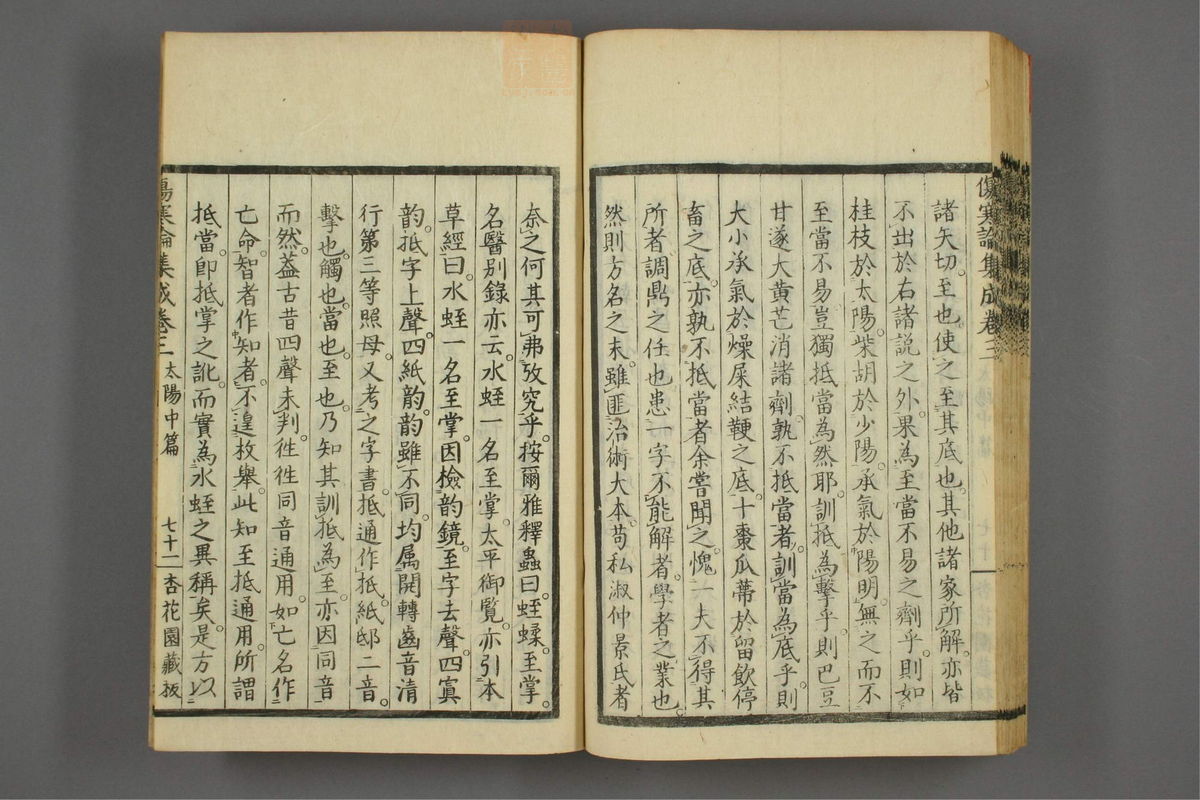 傷寒論集成卷三
諸矢切至也使之至其底也其他諸家所解亦皆
不出於右諸説之外果為至當不易之劑乎則如
桂枝於太陽柴胡於少陽承氣於陽明無之而不
至當不易豈獨抵當為然耶訓抵為擊乎則巴豆
甘遂大黃芒消諸劑孰不抵當者訓當為底乎則
大小承氣於燥屎結鞕之底十棗瓜蒂於留飲停
畜之底亦孰不抵當者余嘗聞之愧一夫不得其
所者調鼎之任也患一字不能解者學者之業也
然則方名之末雖匪治術大本苟私淑仲景氏者
奈之何其可弗攷究乎按爾雅釋蟲曰蛭蝚至掌
名醫别錄亦云水蛭一名至掌太平御覧亦引本
草經曰水蛭一名至掌因檢韵鏡至字去聲四寘
韵抵字上聲四紙韵韵雖不同均属開轉齒音清
行第三等照母又考之字書抵通作抵紙邸二音
擊也觸也當也至也乃知其訓抵為至亦因同音
而然葢古昔四聲未判徃徃同音通用如亡名作
亡命智者作知者不遑枚舉此知至抵通用所謂
抵當即抵掌之訛而實為水蛭之異稱矣是方以
傷寒論集成卷三 太陽中篇 七十二 杏花園藏板